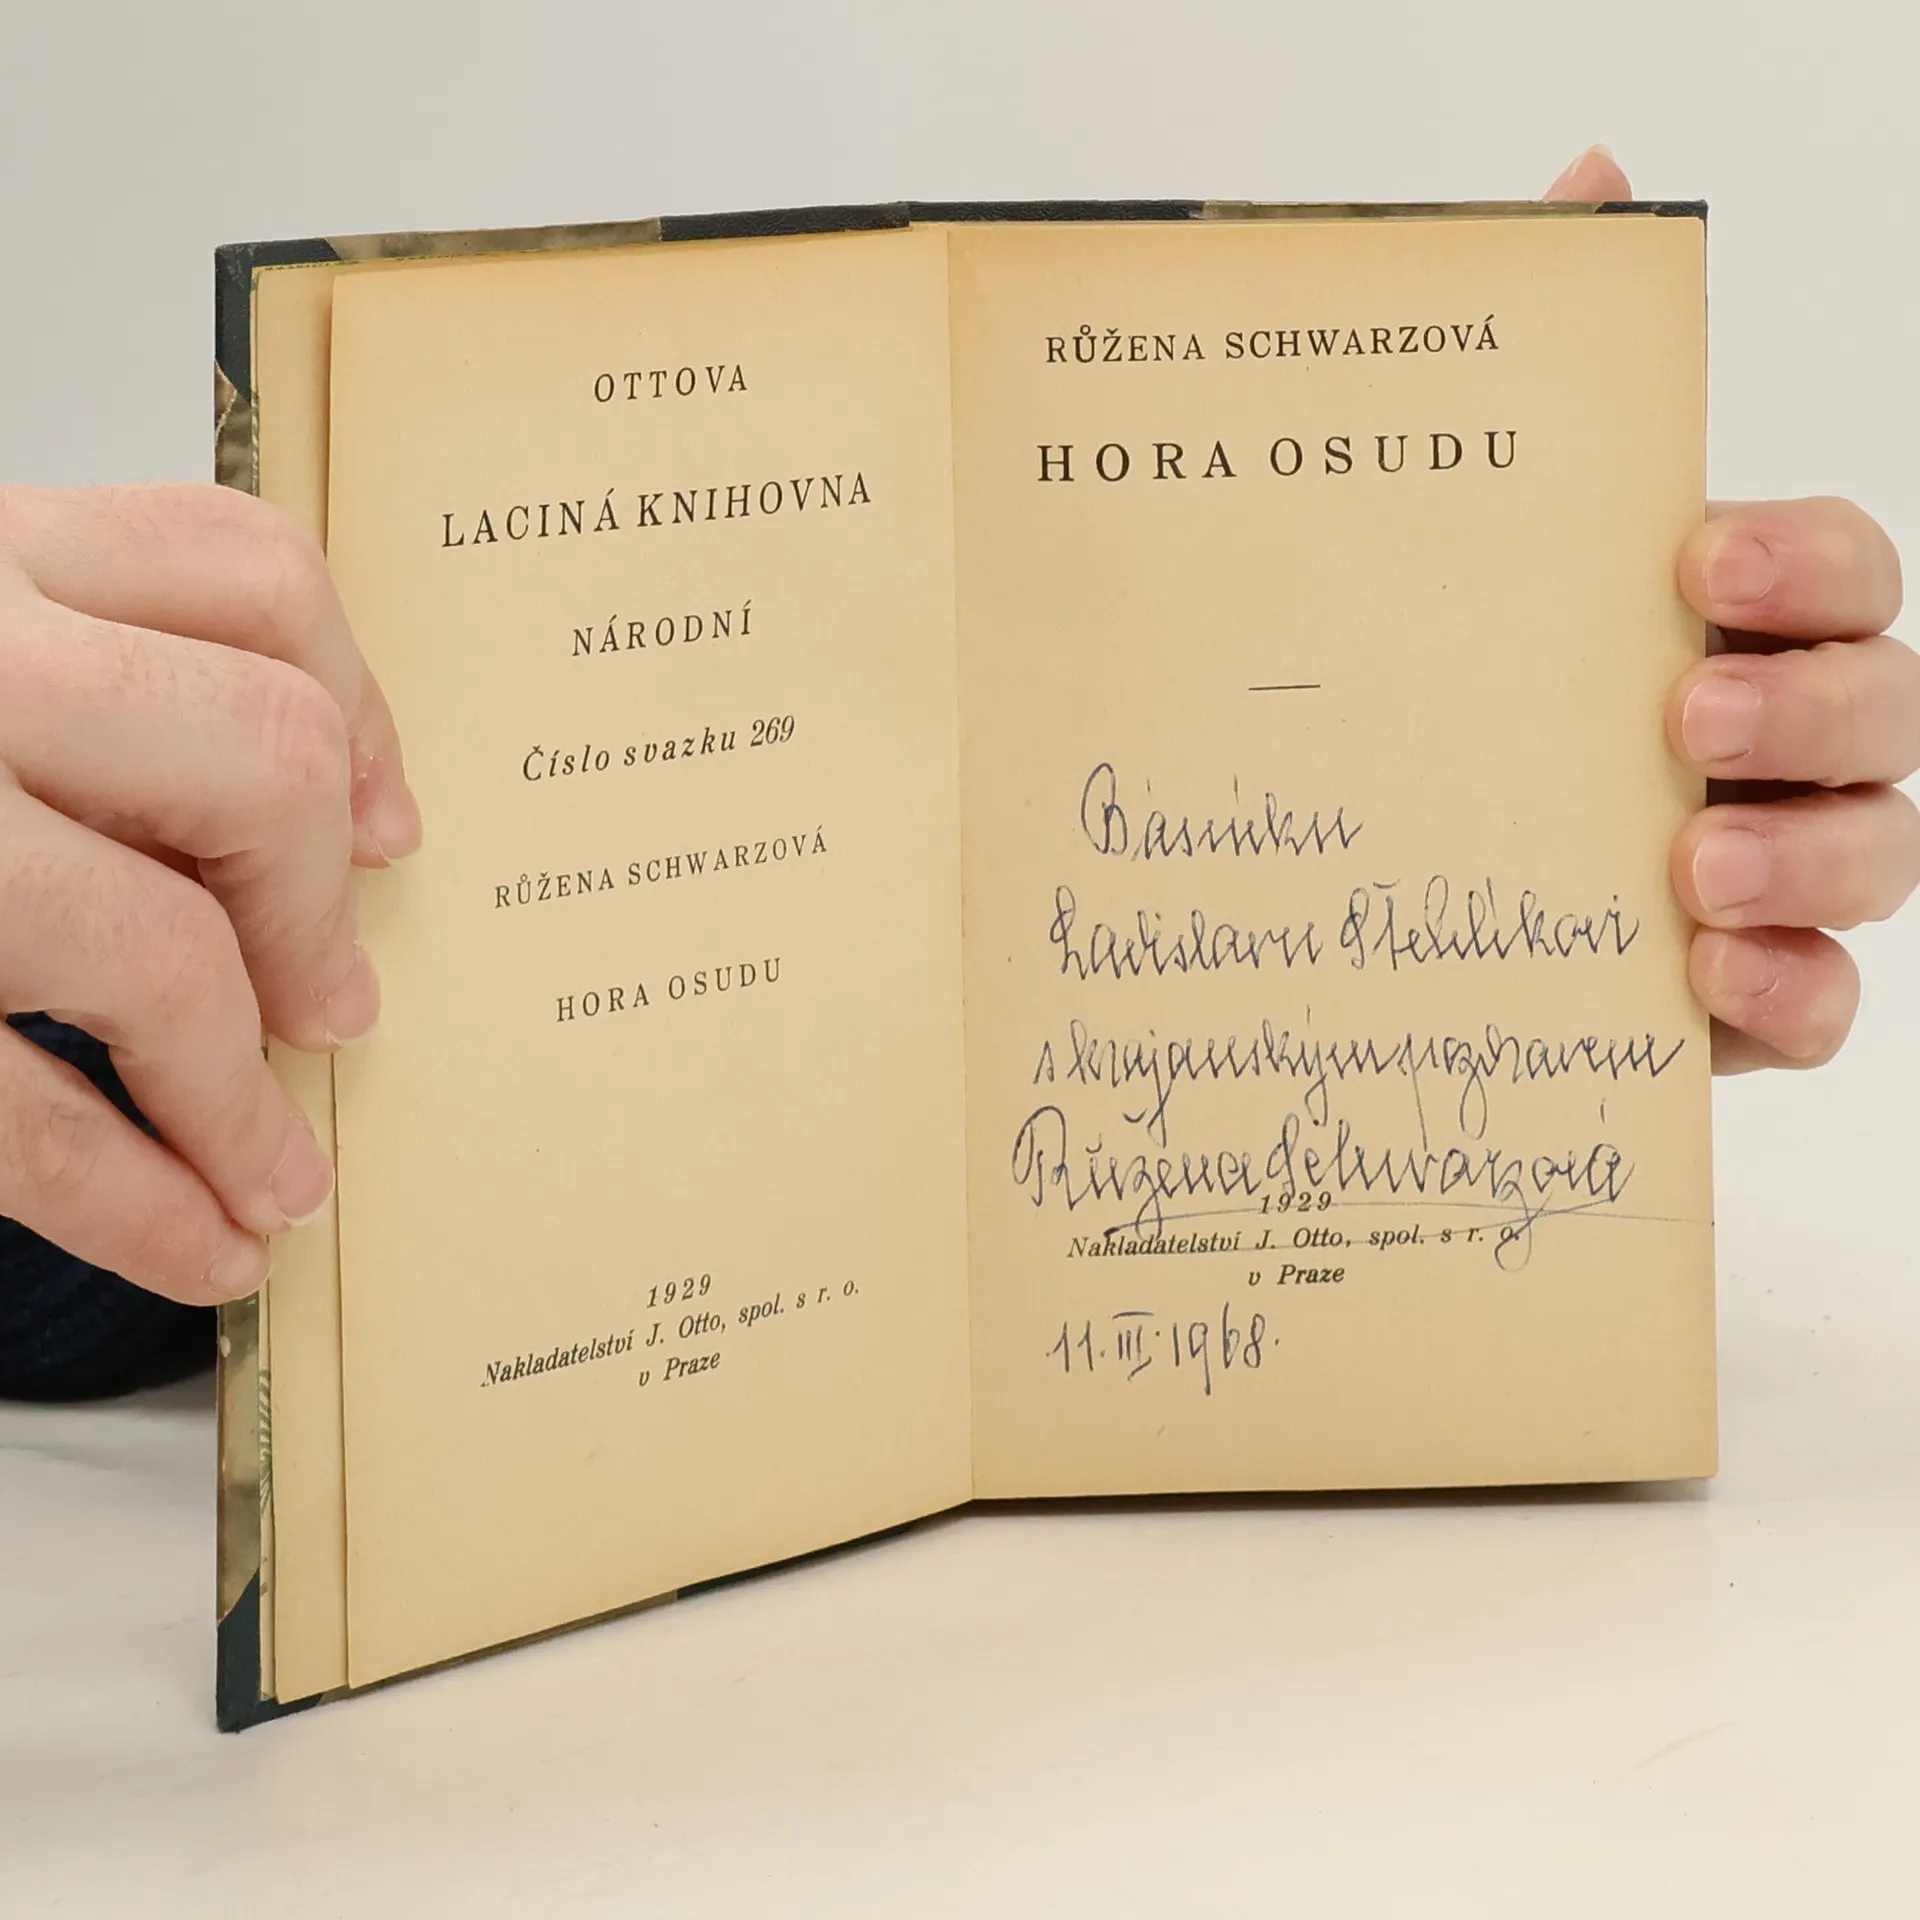 OTTOVA
LACINÁ KNIHOVNA
NÁRODNÍ
Číslo svazku 269
RŮŽENA SCHWARZOVÁ
HORA OSUDU
1929
Nakladatelství J. Otto, spol. s r. o.
v Praze
RŮŽENA SCHWARZOVÁ
HORA OSUDU
Básníku
Ladislavu Stehlíkovi
s krajanským pozdravem
Růžena Schwarzová
1929
Nakladatelství J. Otto, spol. s r. o.
v Praze
11. III. 1968.